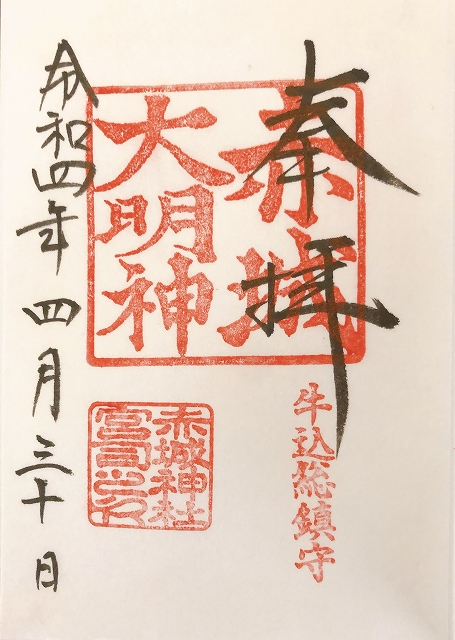 奉拝
赤城
大明神
牛込総鎮守
赤城神社
宮司之印
令和四年四月三十日